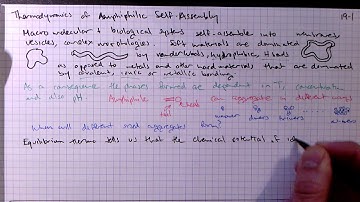 Thermodynamics of Amphiphilic Self-Assembly 19-1
Macromolecular + biological systems self-assemble into membranes
vesicles, complex morphologies Soft materials are dominated
by vander Waals, hydrophobic, H bonds
as opposed to metals and other hard materials that are dominated
by covalent, ionic or metallic bonding
As a consequence the phases formed are dependent in T, concentration
and also pH. Amphiphile can aggregate in different
heads
tail
monomer dimers trimers
When will different sized aggregates form?
Equilibrium thermo tells us that the chemical potential of